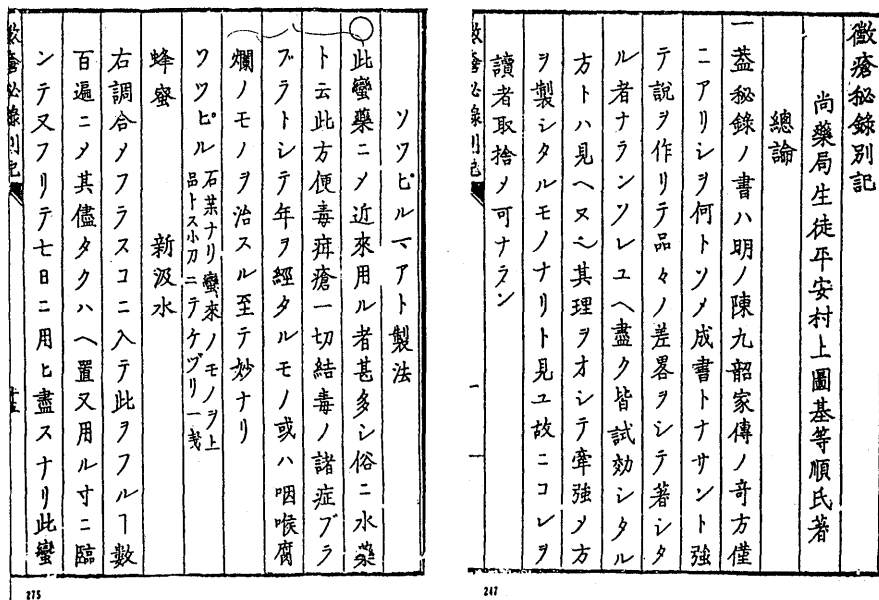 黴瘡秘錄別記
尚藥局生徒平安村上圖基等順氏著
總論
一蓋秘錄ノ書ハ明ノ陳九韶家傳ノ奇方僅
ニアリシヲ何トソメ成書トナサント強
テ説ヲ作リテ品々ノ差畧ヲシテ著シタ
ル者ナランソレユヘ盡ク皆試効シタル
方トハ見ヘヌ〻其理ヲオシテ牽強メ方
ヲ製シタルモノナリト見ユ故ニコレヲ
讀者取捨メ可ナラン
247
ソツピルマアト製法
此蠻藥ニメ近來用ル者甚多シ俗ニ水藥
ト云此方便毒疳瘡一切結毒ノ諸症ブラ
ブラトシテ年ヲ經タルモノ或ハ咽喉腐
爛ノモノヲ治スル至テ妙ナリ
ソツピル 石葉ナリ蠻來ノモノヲ上
品トス小刀ニテケヅリ一戔
蜂蜜 新汲水
右調合メフラスコニ入テ此ヲフルヿ數
百遍ニメ其儘タクハヘ置又用ル寸ニ臨
ンテ又フリテ七日ニ用ヒ盡スナリ此蠻
黴瘡秘錄別記
275